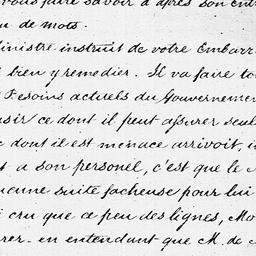 vous faire savoir d'après son ent
u de mots.
inistre instruit de votre Embarr
bien y remedier. Il va faire to
Besoins actuels du Gouverneme
isir ce dont il peut assurer seul
dont il est menacé arrivoit, i
t a son personel, c'est que le
ucune suite facheuse pour lui
i cru que ce peu des lignes, Mo
rer en entendant que M. de